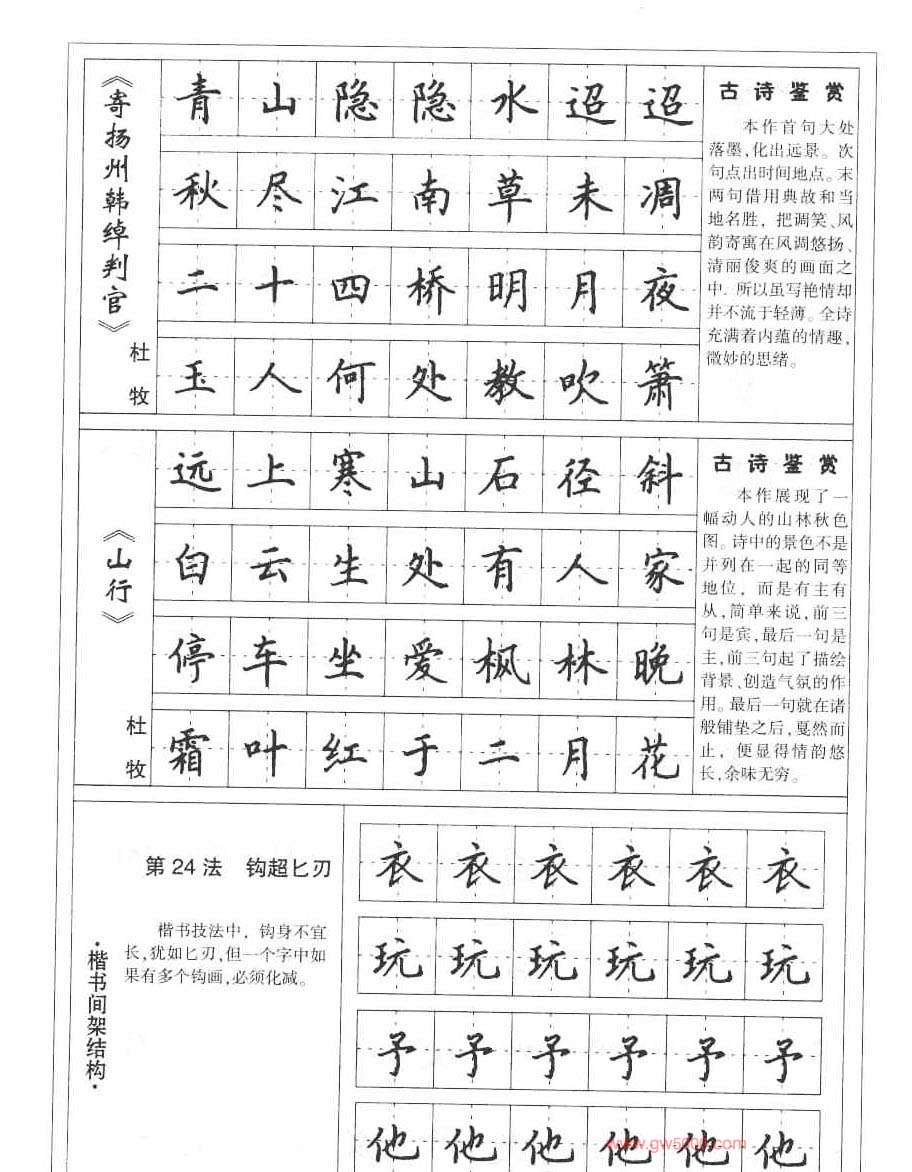 《寄扬州韩绰判官》
杜牧
青山隐隐水迢迢
秋尽江南草未凋
二十四桥明月夜
玉人何处教吹箫
古诗鉴赏
本作首句大处
落墨,化出远景。次
句点出时间地点。末
两句借用典故和当
地名胜，把调笑、风
韵寄寓在风调悠扬、
清丽俊爽的画面之
中．所以虽写艳情却
并不流于轻薄。全诗
充满着内蕴的情趣,
微妙的思绪。
《山行》
杜牧
远上寒山石径斜
白云生处有人家
停车坐爱枫林晚
霜叶红于二月花
古诗鉴赏
本作展现了一
幅动人的山林秋色
图。诗中的景色不是
并列在一起的同等
地位，而是有主有
从,简单来说,前三
句是宾,最后一句是
主,前三句起了描绘
背景、创造气氛的作
用。最后一句就在诸
般铺垫之后,戛然而
止，便显得情韵悠
长,余味无穷。
·楷书间架结构·
第24法 钩超匕刃
楷书技法中，钩身不宜
长,犹如匕刃,但一个字中如
果有多个钩画,必须化减。
衣衣衣衣衣衣
玩玩玩玩玩玩
予予予予予予
他他他他他他
www.gw5000.com